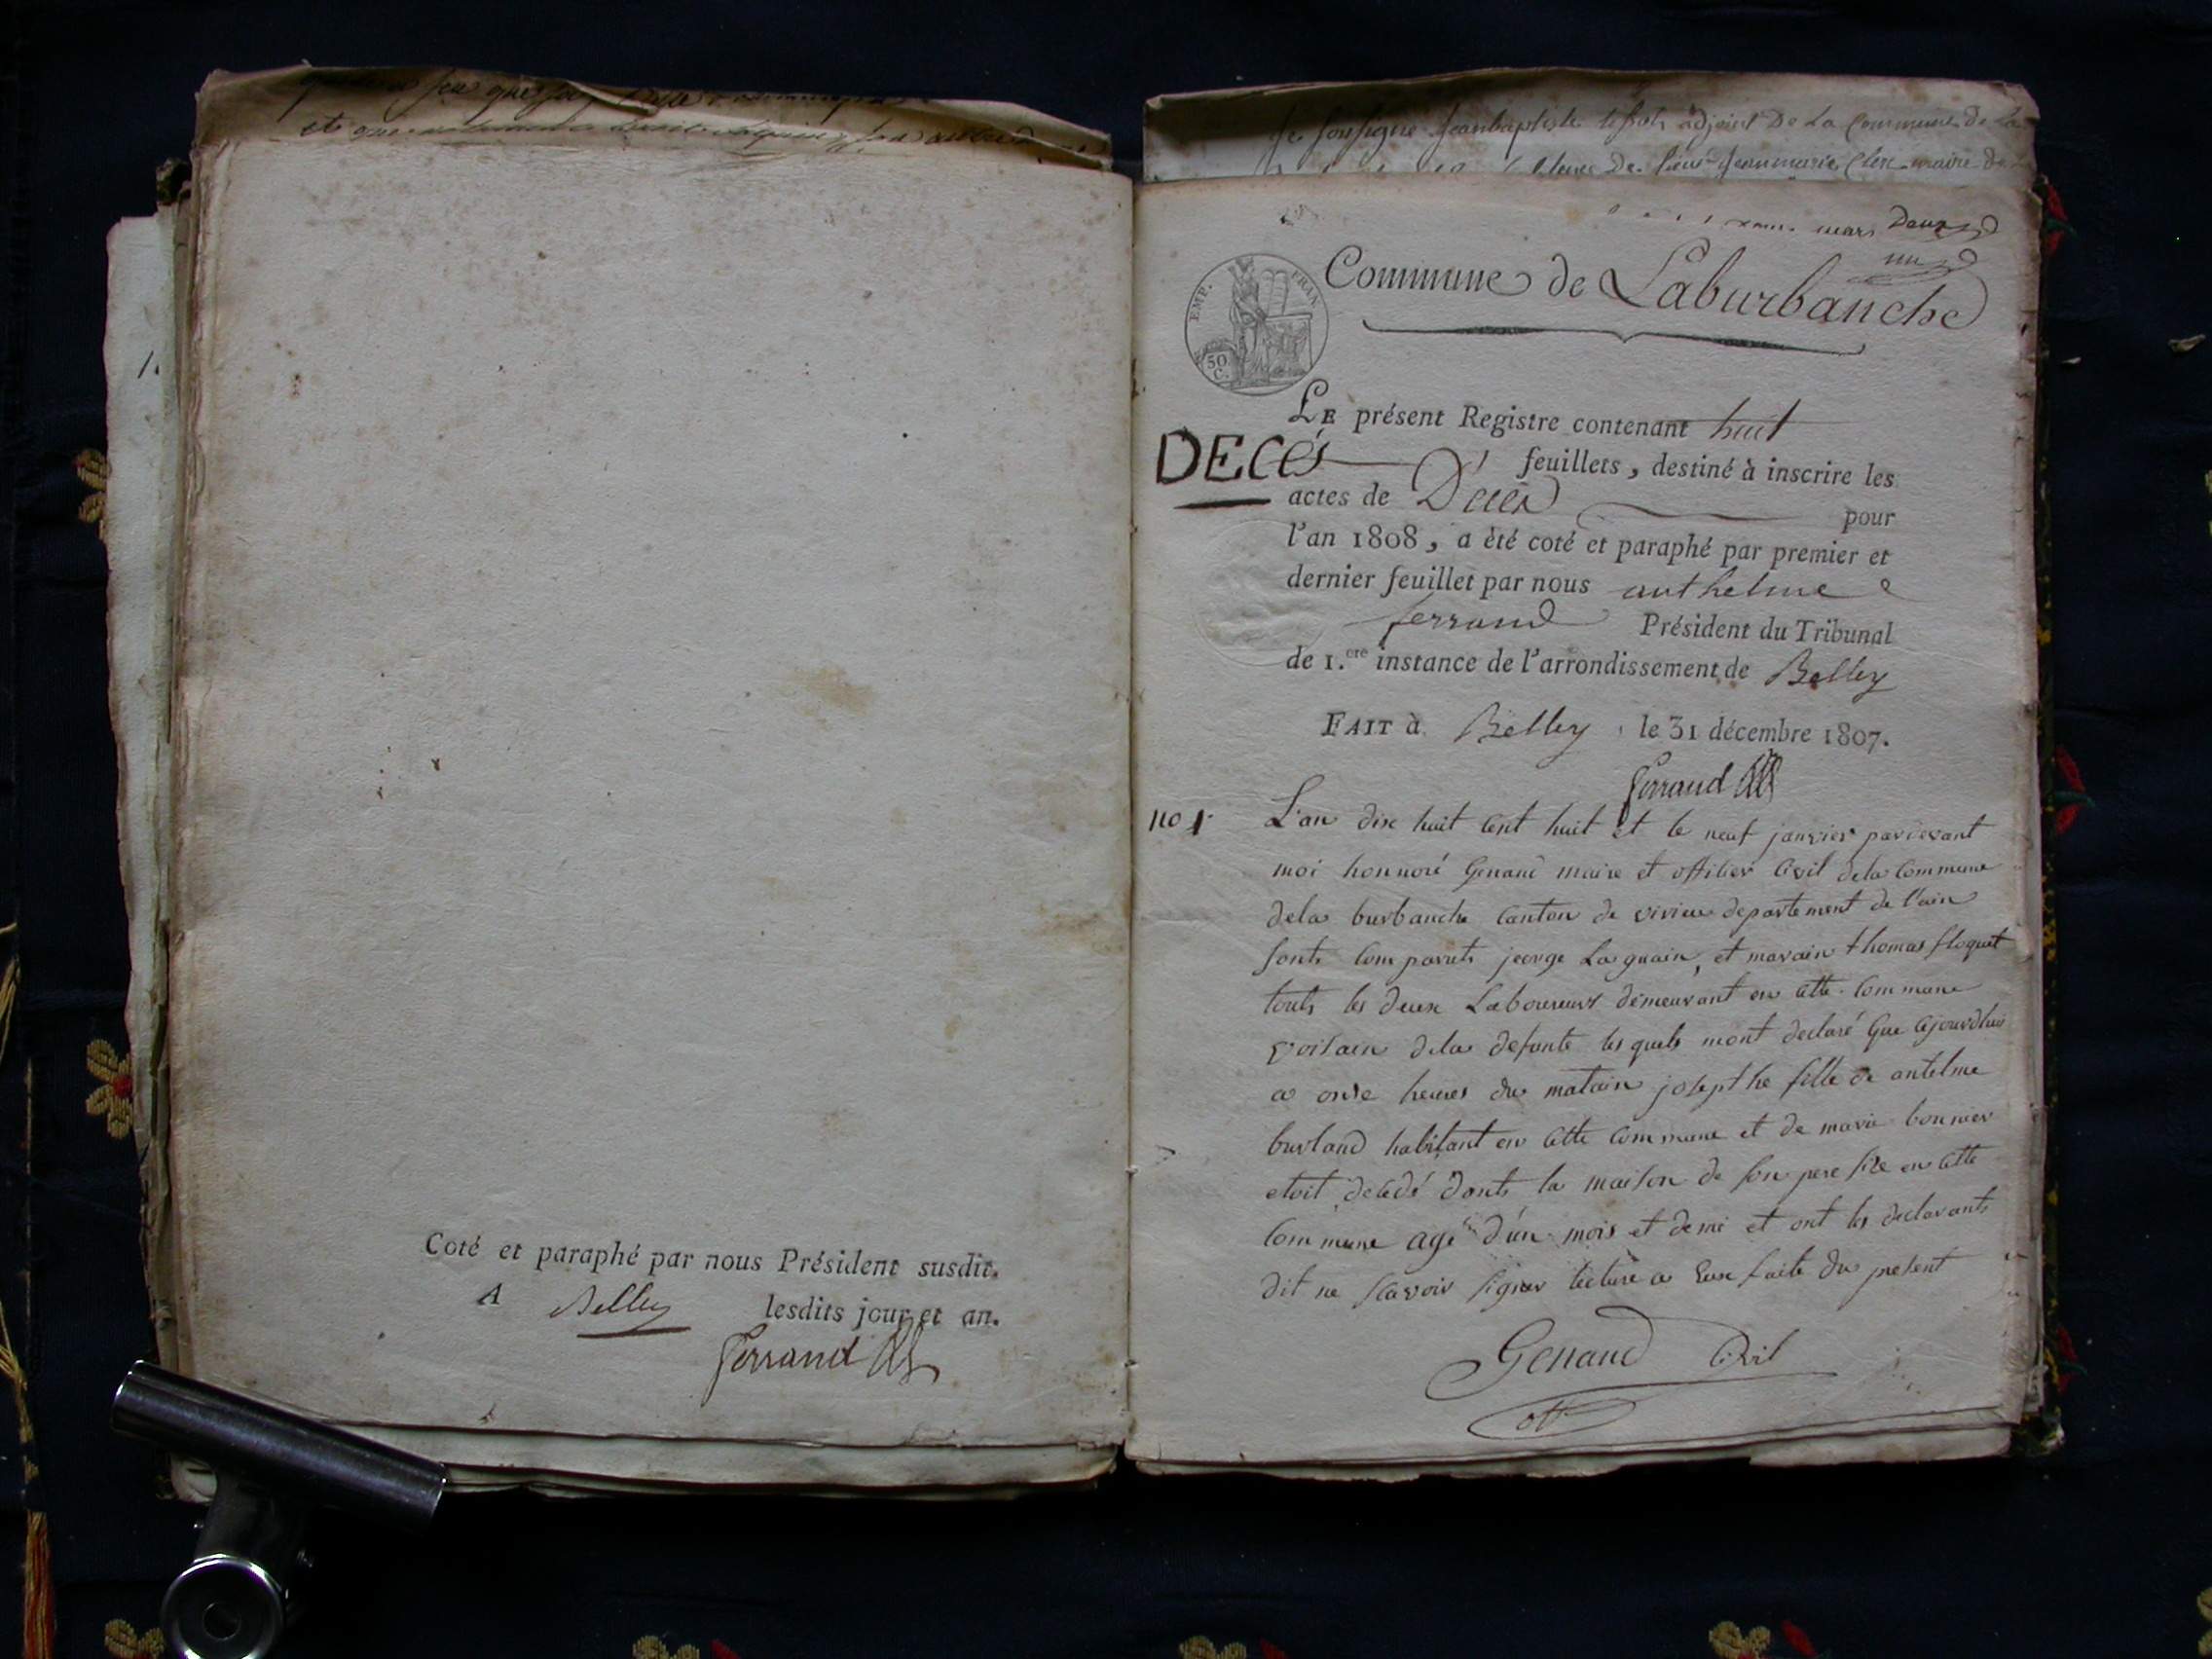 et
Coté et paraphé par nous Président susdit.
A Belley lesdits jour et an.
Ferrand
Je soussigné Jeanbaptiste adjoint De La Commune de La
De sieur Jeanmarie Clerc maire de
mars Deux
un
EMP. FRAN.
50 C.
Commune de Laburbanche
LE présent Registre contenant huit
DECÉS
feuillets, destiné à inscrire les
actes de Décès pour
l'an 1808, a èté coté et paraphé par premier et
dernier feuillet par nous anthelme
ferrand Président du Tribunal
de 1.ere instance de l'arrondissement de Belley
FAIT à Belley le 31 décembre 1807.
Ferrand
no 1.
L'an dix huit cent huit et le neuf janvier pardevant
moi honnoré Genand maire et offitier Civil dela Commune
dela burbanche Canton de virieu departement de l'ain
sonts Comparuts jeorge Laguain, et marain thomas floquet
touts les deux Laboureurs demeurant en Cette Commune
voisain dela defunte les quels mont declaré Que Cejourdhui
a onse heures du matain josepthe fille de antelme
burland habitant en Cette Commune et de marie bonnier
etoit decedé dants la maison de son pere size en Cette
Commune agé d'un mois et demi et ont les declarants
dit ne scavoir signer lecture a Eux faite du present
Genand Civil
off